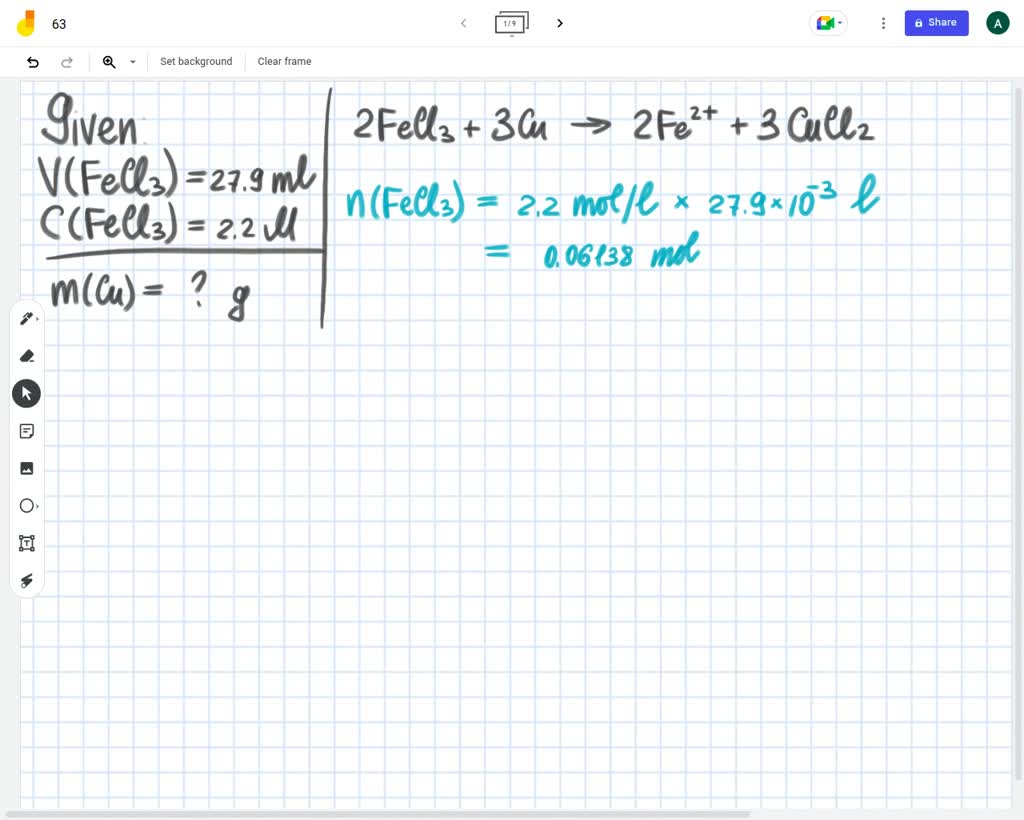 63
1/9
Share
A
Set background
Clear frame
Given:
V(FeCl₃) = 27.9 ml
C(FeCl₃) = 2.2 M
m(Cu) = ? g
2FeCl₃ + 3Cu → 2Fe²⁺ + 3CuCl₂
n(FeCl₃) = 2.2 mol/l × 27.9×10⁻³ l
= 0.06138 mol
T